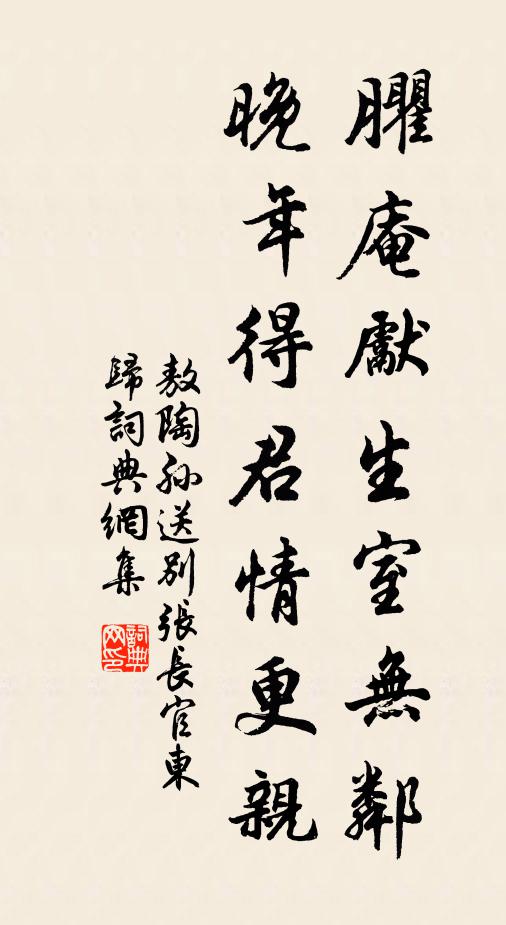 臞庵獻生室無鄰
晚年得君情更親
敖陶孫送別張長官東
歸詞典網集
詞典網印